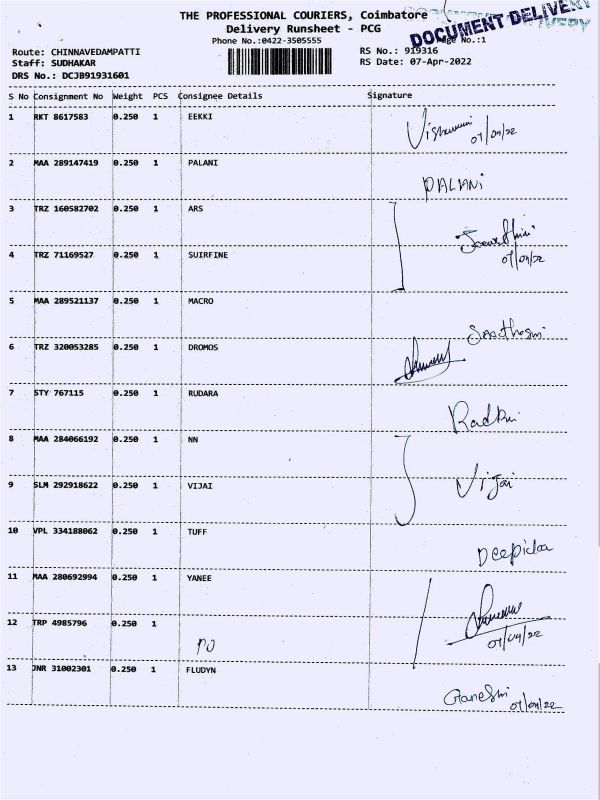 THE PROFESSIONAL COURIERS, Coimbatore
Delivery Runsheet - PCG
DOCUMENT DELIVERY
Phone No.:0422-3505555 Page No.:1
Route: CHINNAVEDAMPATTI RS No.: 919316
Staff: SUDHAKAR RS Date: 07-Apr-2022
DRS No.: DCJB91931601
S No Consignment No Weight PCS Consignee Details Signature
1 RKT 8617583 0.250 1 EEKKI
07/04/22
2 MAA 289147419 0.250 1 PALANI
PALANi
3 TRZ 160582702 0.250 1 ARS
07/04/22
4 TRZ 71169527 0.250 1 SUIRFINE
5 MAA 289521137 0.250 1 MACRO
6 TRZ 320053285 0.250 1 DROMOS
7 STY 767115 0.250 1 RUDARA
8 MAA 284066192 0.250 1 NN
9 SLM 292918622 0.250 1 VIJAI
Vijai
10 VPL 334188062 0.250 1 TUFF
Deepika
11 MAA 280692994 0.250 1 YANEE
12 TRP 4985796 0.250 1
PO 07/04/22
13 JNR 31002301 0.250 1 FLUDYN
07/04/22